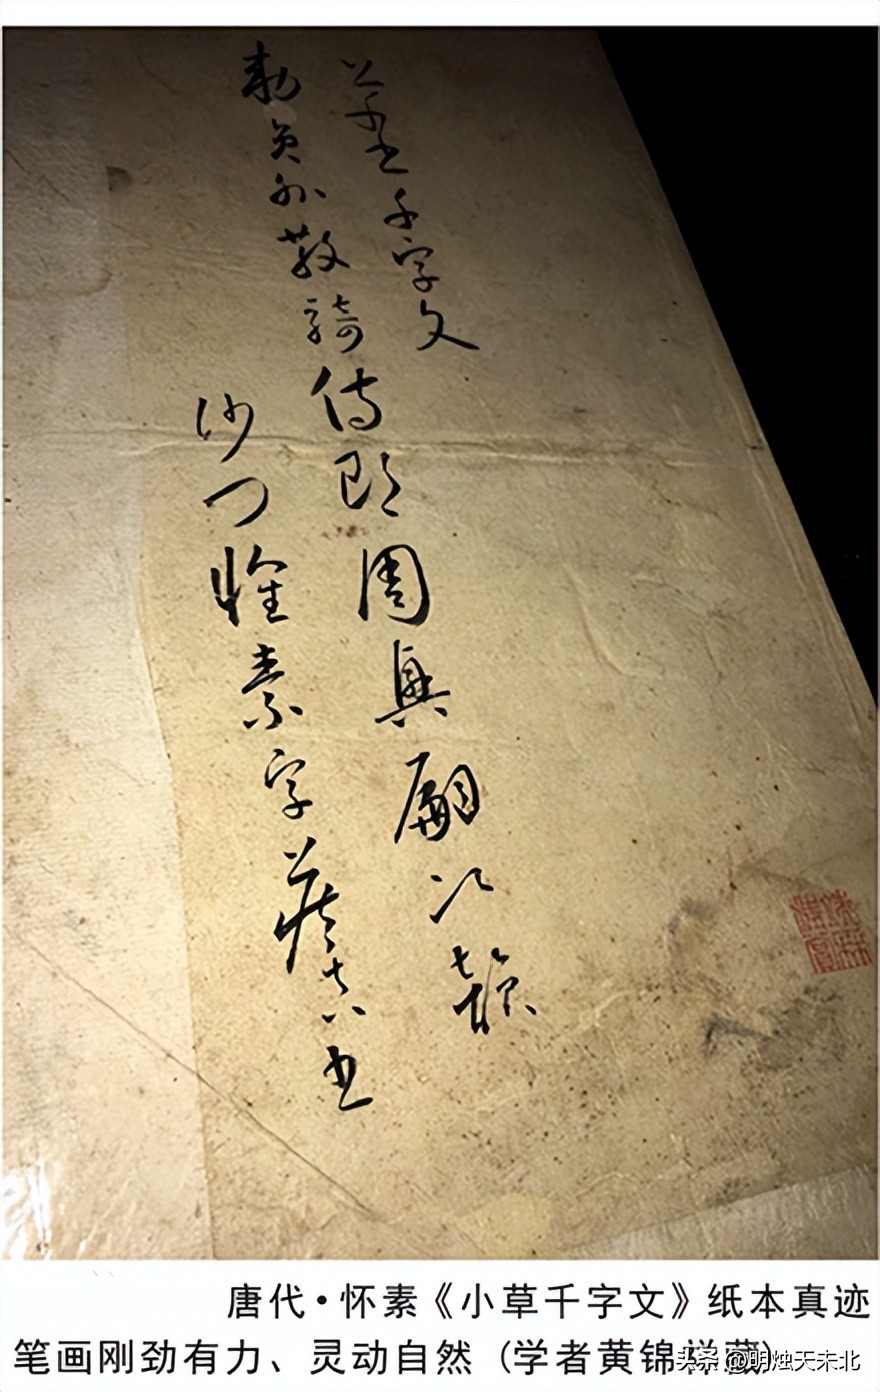 草書千字文
勅員外散騎侍郎周興嗣次韻
沙門懷素字藏真書
唐代•怀素《小草千字文》纸本真迹
笔画刚劲有力、灵动自然 (学者黄锦祥藏)
头条 @明烛天未北